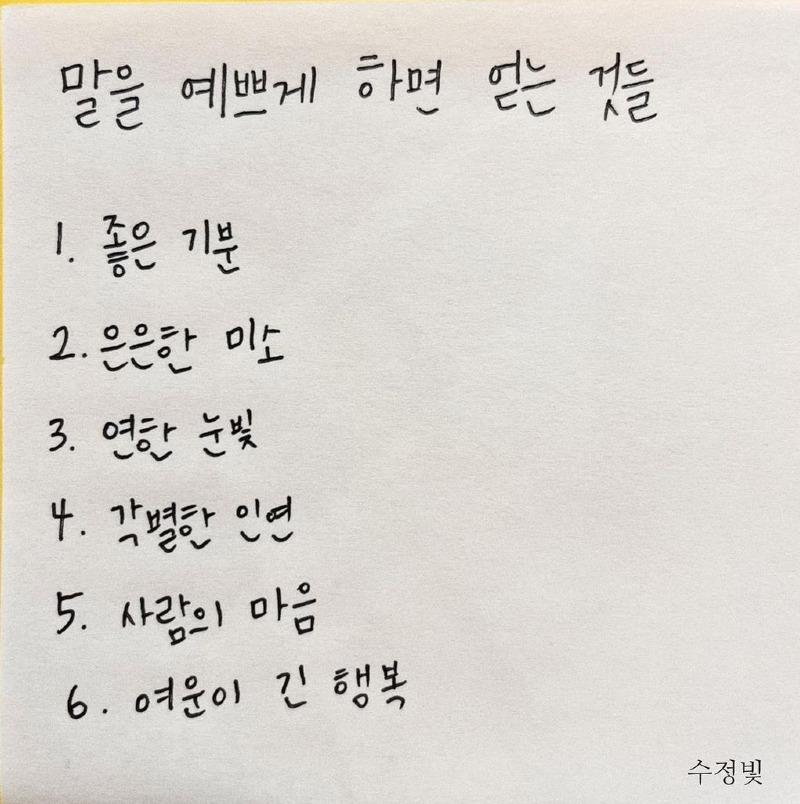 말을 예쁘게 하면 얻는 것들
1. 좋은 기분
2. 은은한 미소
3. 연한 눈빛
4. 각별한 인연
5. 사람의 마음
6. 여운이 긴 행복
수정빛